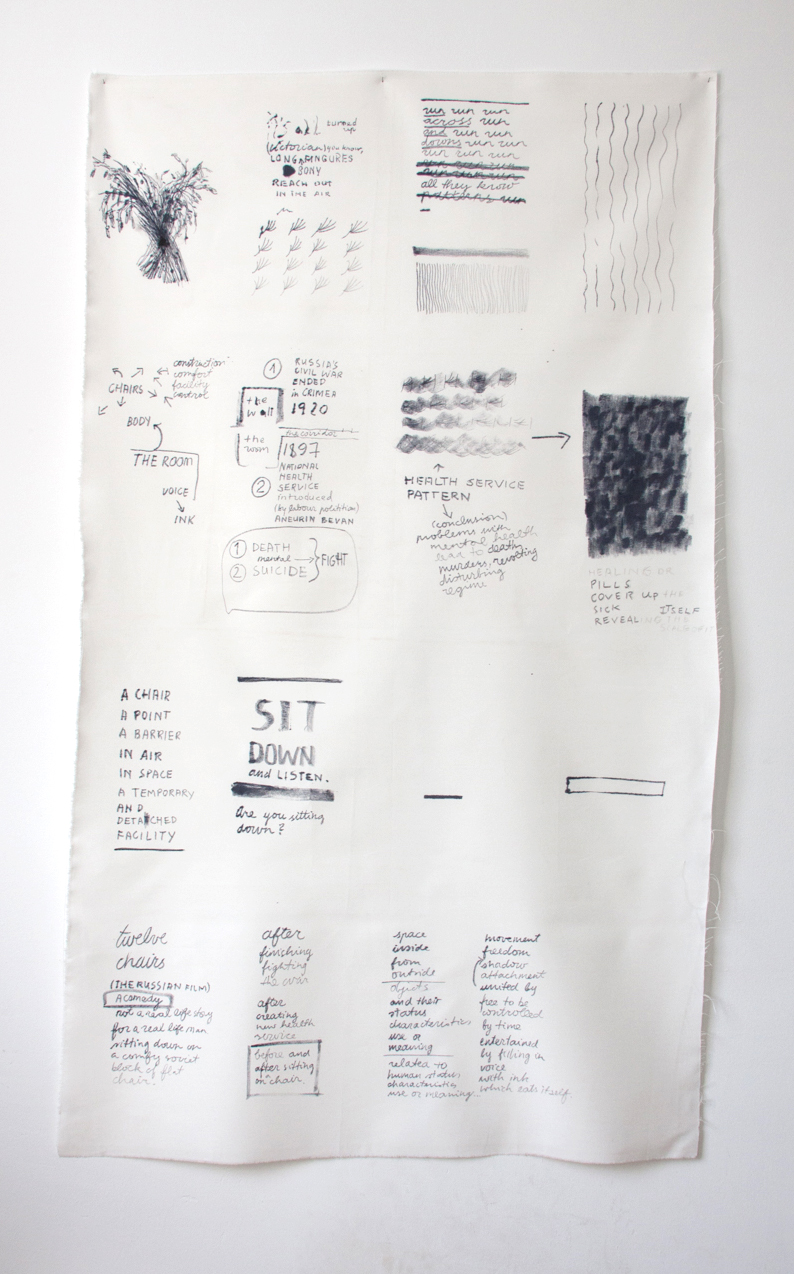 all turned
up
(victorian) you know
LONG & FINGURES
BONY
REACH OUT
IN THE AIR
run run run
across run
and run run
downs run run
run run run
run run run
run run run
all they know
patterns run
construction
comfort
facility
control
CHAIRS
BODY
THE ROOM
VOICE
INK
1
RUSSIA'S
CIVIL WAR
ENDED
in CRIMEA
1920
the
wall
the corridor
the
room
1897
NATIONAL
HEALTH
2 SERVICE
introduced
(by labour politition)
ANEURIN BEVAN
1 DEATH
mental
2 SUICIDE
FIGHT
HEALTH SERVICE
PATTERN
(conclusion)
problems with
mental health
lead to death,
murders, revolting
disturbing
regime
HEALING OR
PILLS
COVER UP THE
SICK ITSELF
REVEALING THE
A CHAIR
A POINT
A BARRIER
IN AIR
IN SPACE
A TEMPORARY
AND
DETACHED
FACILITY
SIT
DOWN
and LISTEN.
Are you sitting
down?
twelve
chairs
(THE RUSSIAN FILM)
A comedy
not a real life story
for a real life man
sitting down on
a comfy soviet
block of flat
chair!
after
finishing
fighting
the war
after
creating
new health
service
before and
after sitting
on chair.
space
inside
from
outside
objects
and their
status
characteristics
use or
meaning
related to
human status
characteristics
use or meaning
movement
freedom
shadow
attachment
united by
free to be
controlled
by time
entertained
by filling in
voice
with ink
which eats itself.